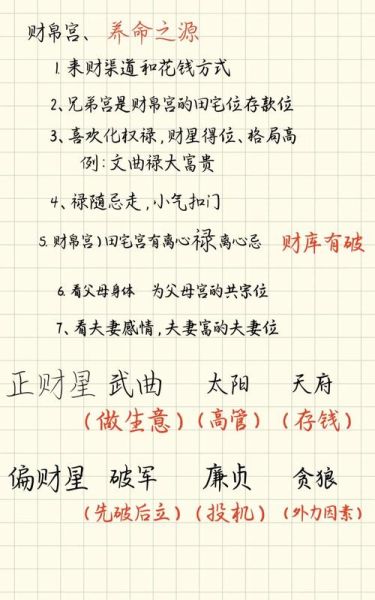 财帛宫、养命之源
1.来财渠道和花钱方式
2、兄弟宫是财帛宫的田宅位存款位
3、喜欢化权禄,财星得位、格局高
例:文曲禄大富贵
4、禄随忌走,小气扣门
5.财帛宫)田宅宫有离心禄离心忌 财库有破
6.看父母身体 为父母宫的共宗位
7、看夫妻感情,夫妻富的夫妻位
正财星 武曲 太阳 天府
(做生意) (高管) (存钱)
偏财星 破军 廉贞 贪狼
(先破后立) (投机) (外力因素)